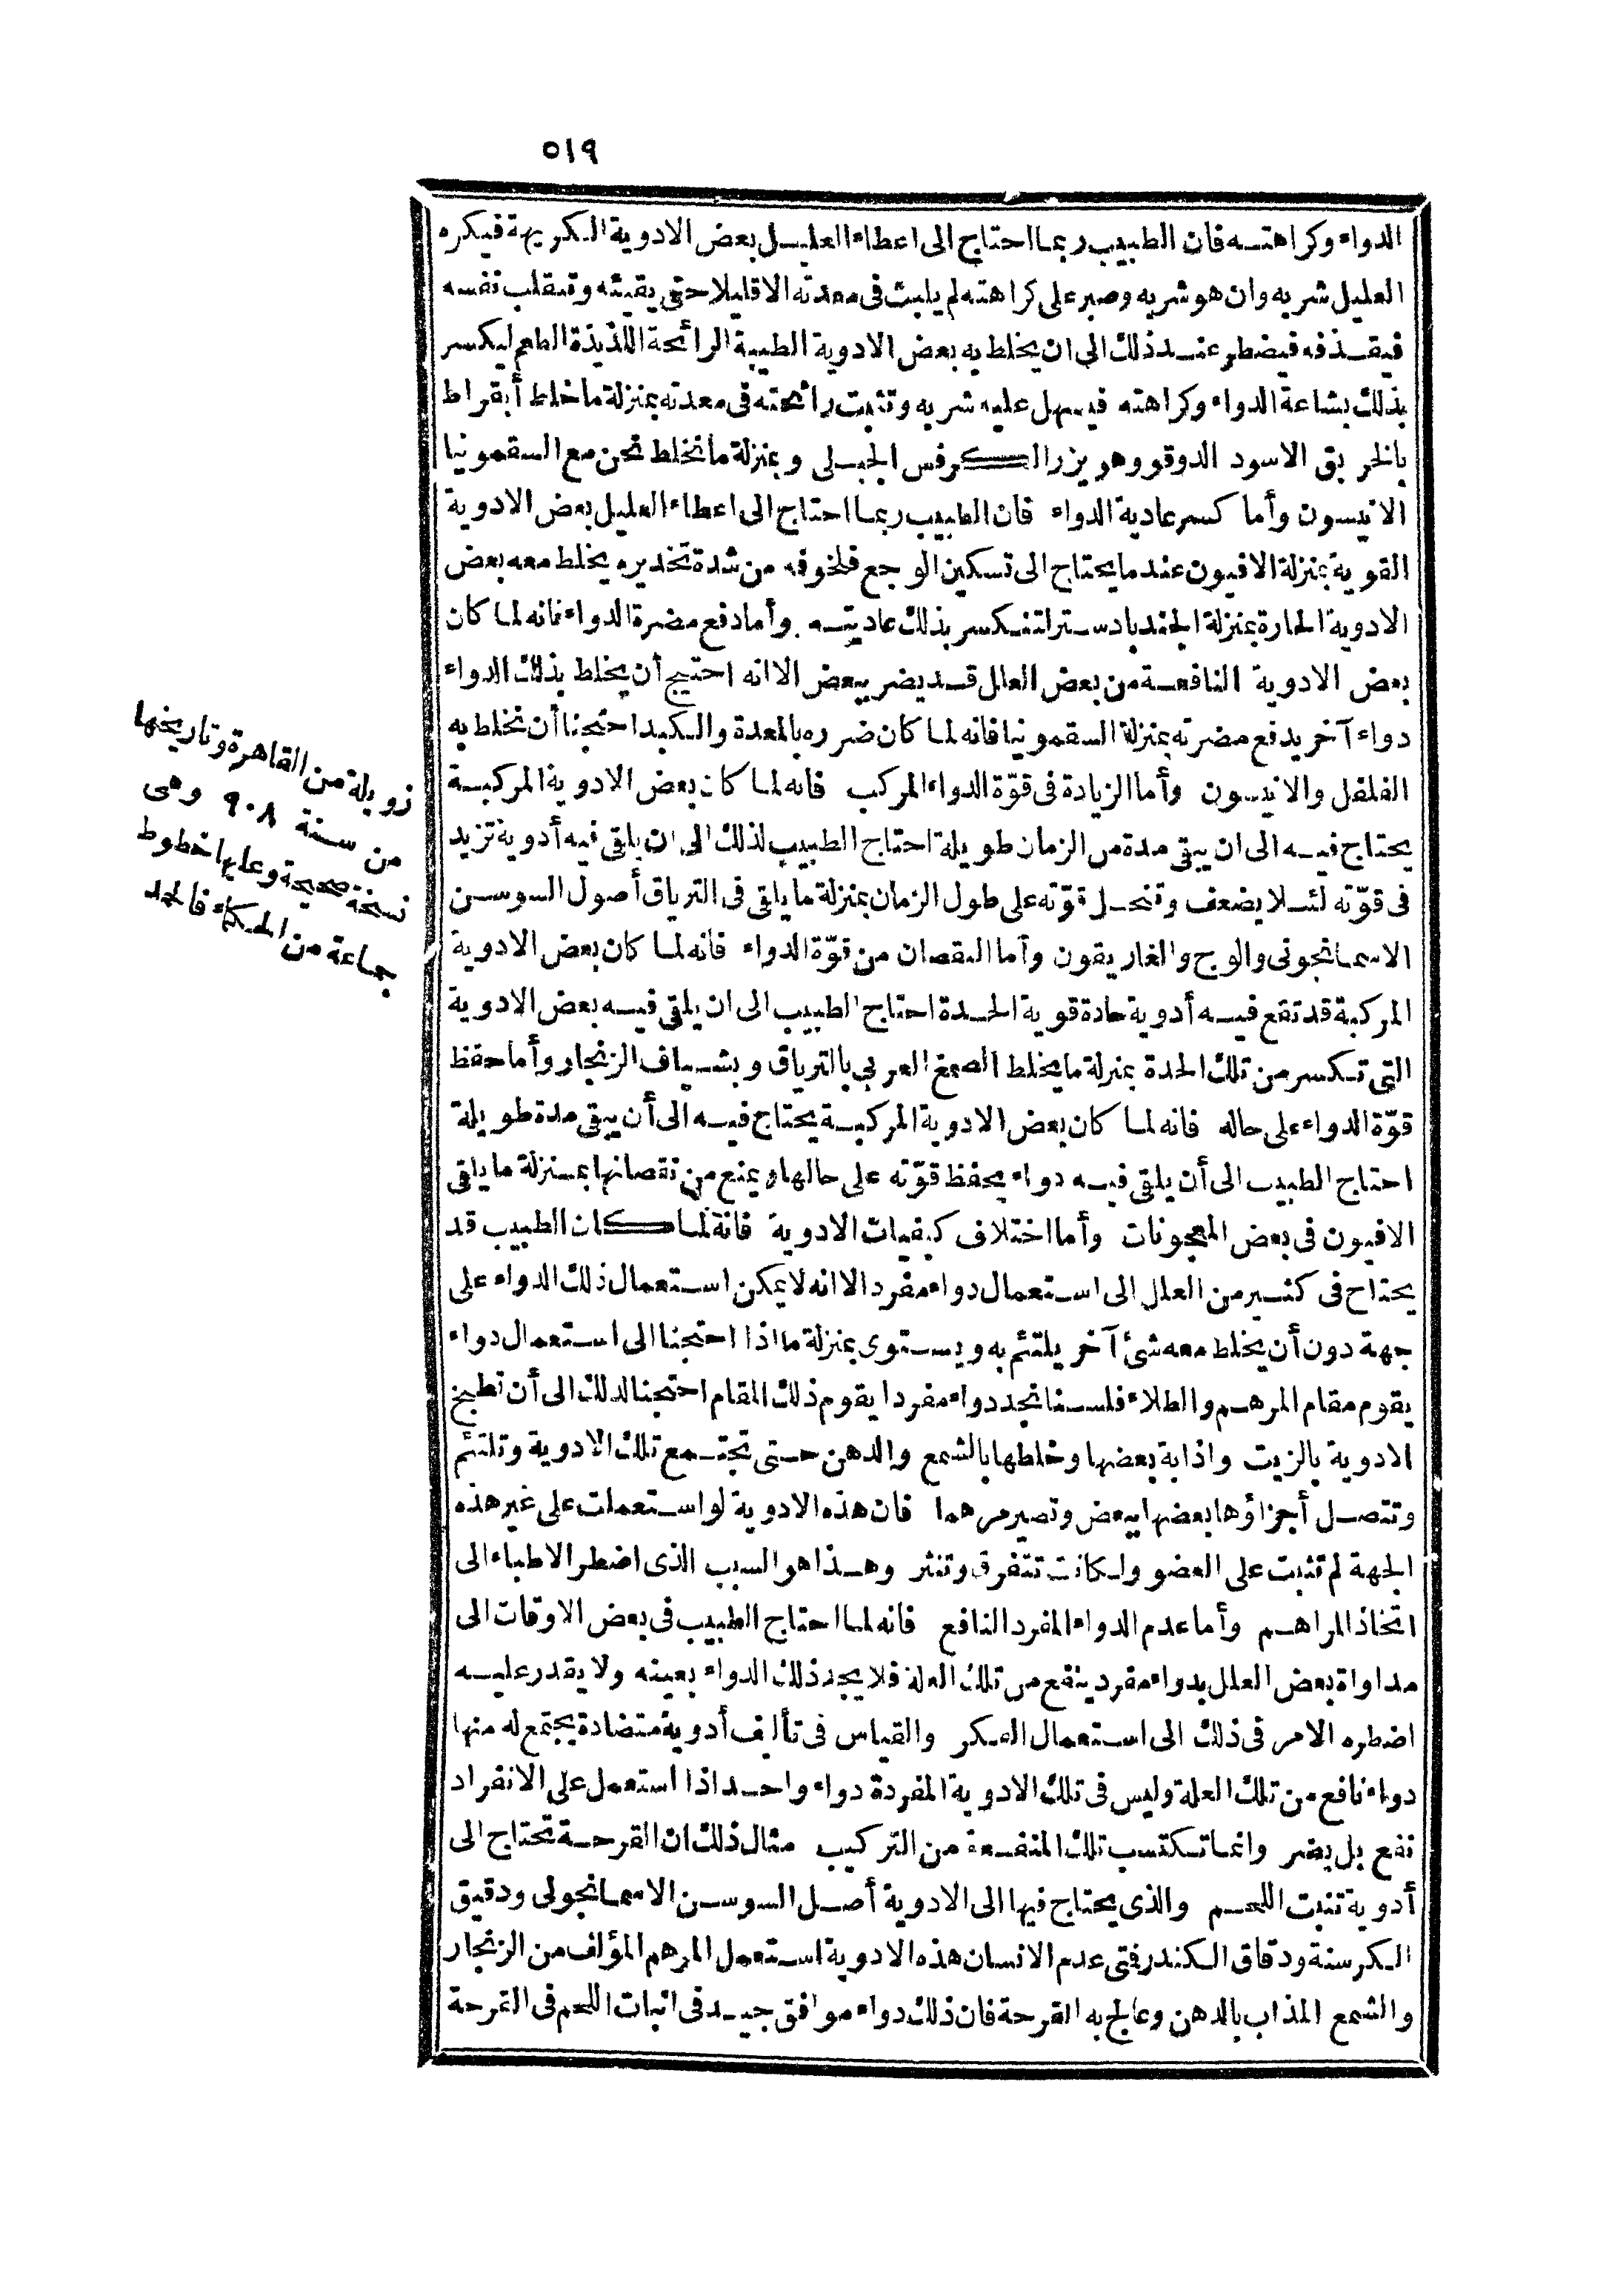 ٥١٩
الدواء وكراهتـه فان الطبيب ربما احتاج الى اعطاء العليل بعض الادوية الكريهة فيكره
العليل شربه وان هو شربه وصبر على كراهته لم يلبث فى معدته الا قليلا حتى يقيئه وتنقلب نفسه
فيقذفه فيضطر عند ذلك الى ان يخلط به بعض الادوية الطيبة الرائحة اللذيذة الطعم ليكسر
بذلك بشاعة الدواء وكراهته فيسهل عليه شربه وتثبت رائحته فى معدته بمنزلة ما خلط أبقراط
بالخربق الاسود الدوقو وهو بزر الكرفس الجبلى وبمنزلة ما نخلط نحن مع السقمونيا
الانيسون وأما كسر عادية الدواء فان الطبيب ربما احتاج الى اعطاء العليل بعض الادوية
القوية بمنزلة الافيون عندما يحتاج الى تسكين الوجع فلخوفه من شدة تخديره يخلط معه بعض
الادوية الحارة بمنزلة الجندبادستر لتنكسر بذلك عاديته وأما دفع مضرة الدواء فانه لما كان
بعض الادوية النافعة من بعض العلل قد يضر ببعض الا انه احتيج أن يخلط بذلك الدواء
دواء آخر يدفع مضرته بمنزلة السقمونيا فانه لما كان ضرره بالمعدة والكبد احتجنا أن نخلط به
الفلفل والانيسون وأما الزيادة فى قوّة الدواء المركب فانه لما كان بعض الادوية المركبة
يحتاج فيه الى ان يبقى مدة من الزمان طويلة احتاج الطبيب لذلك الى ان يلقى فيه أدوية تزيد
فى قوّته لئلا يضعف وتنحل قوّته على طول الزمان بمنزلة ما يلقى فى الترياق أصول السوسن
الاسمانجونى والوج والغاريقون وأما النقصان من قوّة الدواء فانه لما كان بعض الادوية
المركبة قد تقع فيه أدوية حادة قوية الحدة احتاج الطبيب الى ان يلقى فيه بعض الادوية
التى تكسر من تلك الحدة بمنزلة ما يخلط الصمغ العربى بالترياق وبشياف الزنجار وأما حفظ
قوّة الدواء على حاله فانه لما كان بعض الادوية المركبة يحتاج فيه الى أن يبقى مدة طويلة
احتاج الطبيب الى أن يلقى فيه دواء يحفظ قوّته على حالها ويمنع من نقصانها بمنزلة ما يلقى
الافيون فى بعض المعجونات وأما اختلاف كيفيات الادوية فانه لما كان الطبيب قد
يحتاج فى كثير من العلل الى استعمال دواء مفرد الا انه لا يمكن استعمال ذلك الدواء على
جهة دون أن يخلط معه شئ آخر يلتئم به ويستوى بمنزلة ما اذا احتجنا الى استعمال دواء
يقوم مقام المرهم والطلاء فلسنا نجد دواء مفردا يقوم ذلك المقام احتجنا لذلك الى أن تطبخ
الادوية بالزيت واذابة بعضها وخلطها بالشمع والدهن حتى تجتمع تلك الادوية وتلتئم
وتتصل أجزاؤها بعضها ببعض وتصير مرهما فان هذه الادوية لو استعملت على غير هذه
الجهة لم تثبت على العضو ولكانت تتفرق وتنثر وهذا هو السبب الذى اضطر الاطباء الى
اتخاذ المراهم وأما عدم الدواء المفرد النافع فانه لما احتاج الطبيب فى بعض الاوقات الى
مداواة بعض العلل بدواء مفرد ينفع من تلك العلة فلا يجد ذلك الدواء بعينه ولا يقدر عليه
اضطره الامر فى ذلك الى استعمال الفكر والقياس فى تأليف أدوية متضادة يجتمع له منها
دواء نافع من تلك العلة وليس فى تلك الادوية المفردة دواء واحد اذا استعمل على الانفراد
نفع بل يضر وانما تكتسب تلك المنفعة من التركيب مثال ذلك ان القرحة تحتاج الى
أدوية تنبت اللحم والذى يحتاج فيها الى الادوية أصل السوسن الاسمانجولى ودقيق
الكرسنة ودقاق الكندر فتى عدم الانسان هذه الادوية استعمل المرهم المؤلف من الزنجار
والشمع المذاب بالدهن وعالج به القرحة فان ذلك دواء موافق جيد فى انبات اللحم فى القرحة
زويلة من القاهرة وتاريخها
من سنة ٩٠٨ وهى
نسخة صحيحة وعليها خطوط
جماعة من الحكماء فالحمد